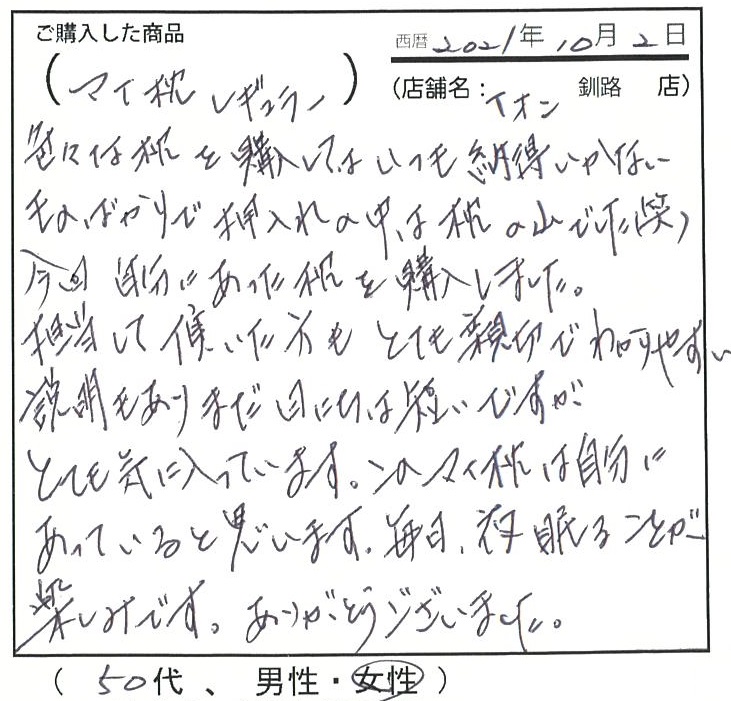 ご購入した商品
西暦2021年10月2日
(マイ枕 レギュラー)
(店舗名：イオン 釧路 店)
色々な枕を購入してはいつも納得いかない
ものばかりで押入れの中は枕の山でした(笑)
今回自分にあった枕を購入しました。
担当して頂いた方もとても親切でわかりやすい
説明もありまだ日にちは短いですが
とても気に入っています。このマイ枕は自分に
あっていると思います。毎日、夜眠ることが
楽しみです。ありがとうございました。
(50代、男性・女性)